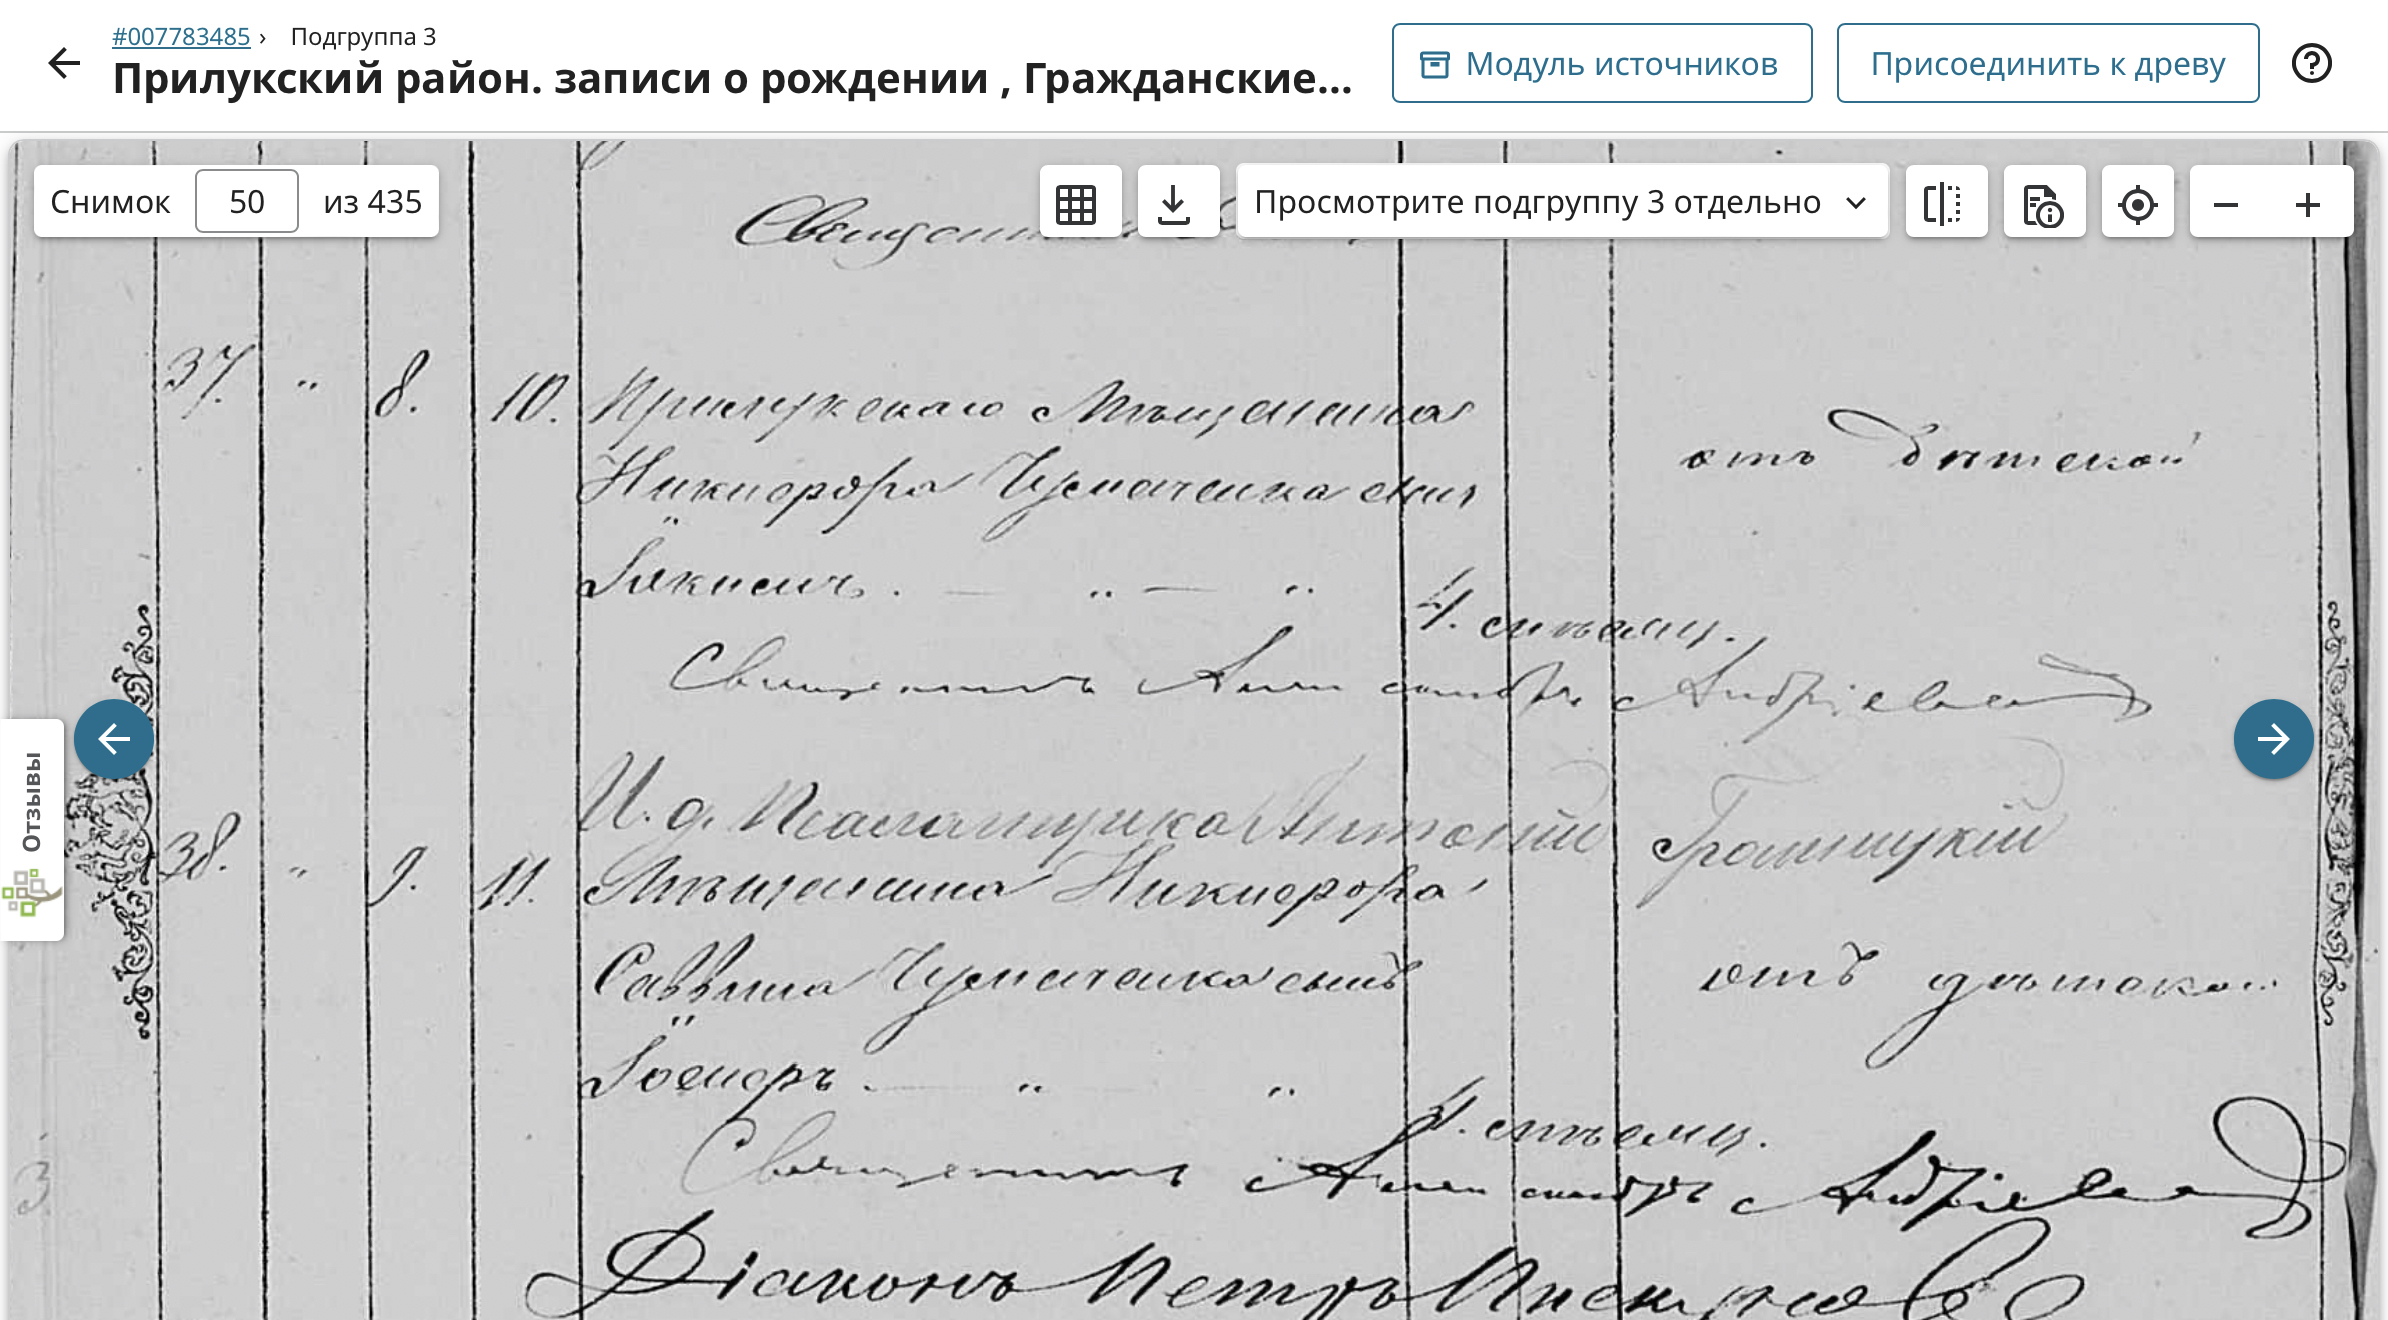 #007783485 › Подгруппа 3
Прилукский район. записи о рождении , Гражданские...
Модуль источников
Присоединить к древу
Снимок 50 из 435
Просмотрите подгруппу 3 отдельно
Священникъ
37. " 8. 10. Прилукскаго Мѣщанина
Никифора Чумаченка сынъ
отъ дѣтской
Іоакимъ . — " — "
4. мѣсяц.
Священникъ Александръ Андріевскій
И. д. Псаломщика Антоній Громницкій
38. " 9. 11. Мѣщанина Никифора
Саввина Чумаченка сынъ
отъ дѣтской
Іосифъ . — " "
4. мѣсяц.
Священникъ Александръ Андріевскій
Діаконъ Петръ
Отзывы